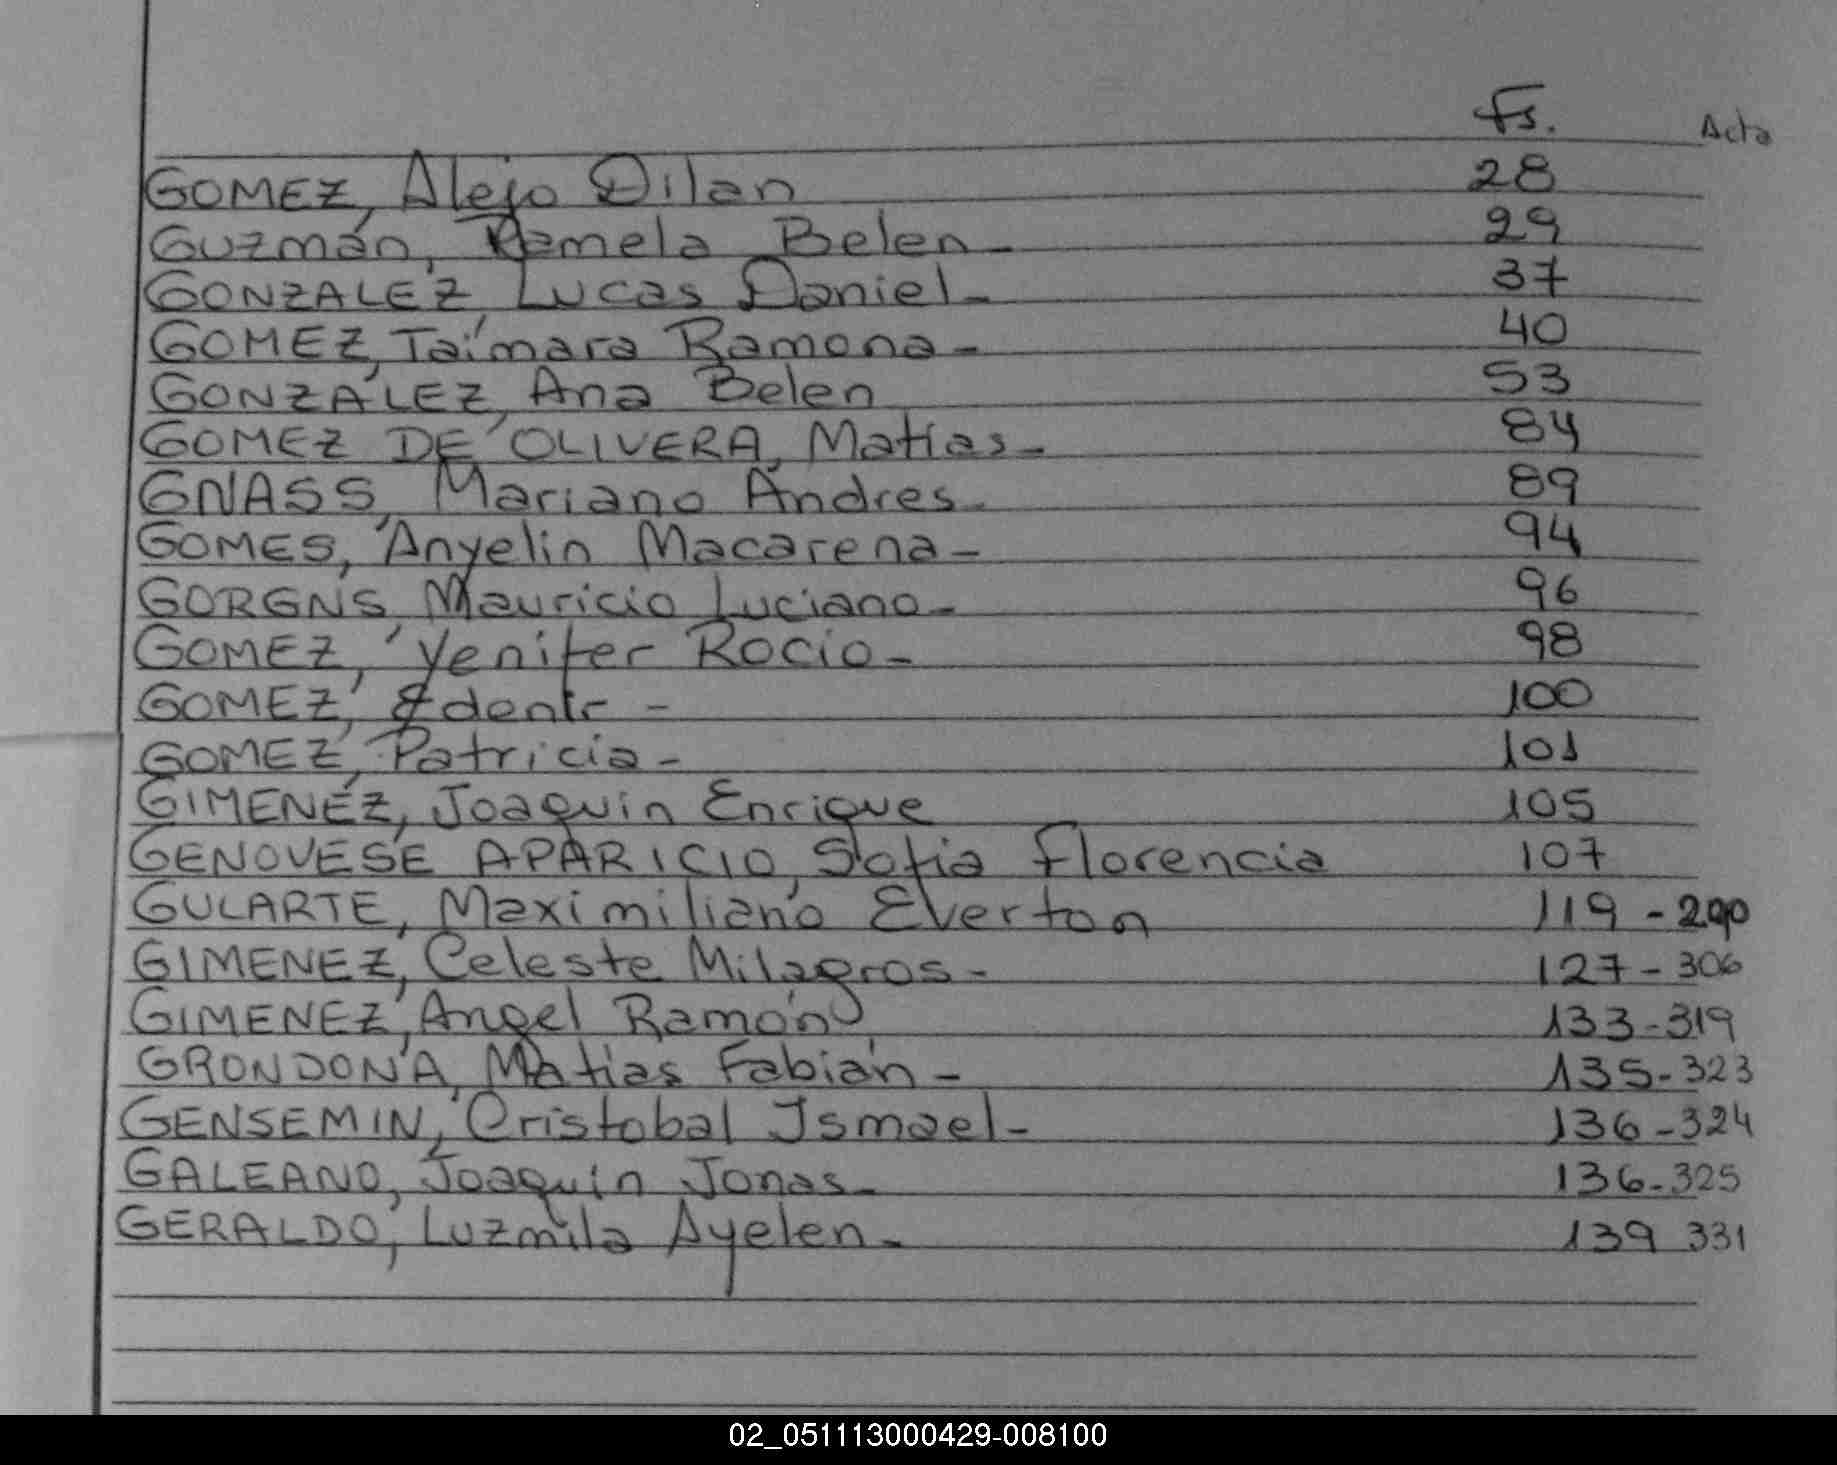 Fs. Acta
GOMEZ, Alejo Dilan 28
Guzmán, Pamela Belen - 29
GONZALEZ, Lucas Daniel - 37
GOMEZ, Taimara Ramona - 40
GONZALEZ, Ana Belen 53
GOMEZ DE OLIVERA, Matías - 84
GNASS, Mariano Andres - 89
GOMES, Anyelin Macarena - 94
GORGNS, Mauricio Luciano - 96
GOMEZ, Yenifer Rocio - 98
GOMEZ, - 100
GOMEZ, Patricia - 101
GIMENEZ, Joaquin Enrique 105
GENOVESE APARICIO, Sofia Florencia 107
GULARTE, Maximiliano Everton 119 -
GIMENEZ, Celeste Milagros - 127 - 306
GIMENEZ, Angel Ramón 133 - 319
GRONDONA, Matias Fabián - 135 - 323
GENSEMIN, Cristobal Ismael - 136 - 324
GALEANO, Joaquin Jonas - 136 - 325
GERALDO, Luzmila Ayelen - 139 331
02_051113000429-008100